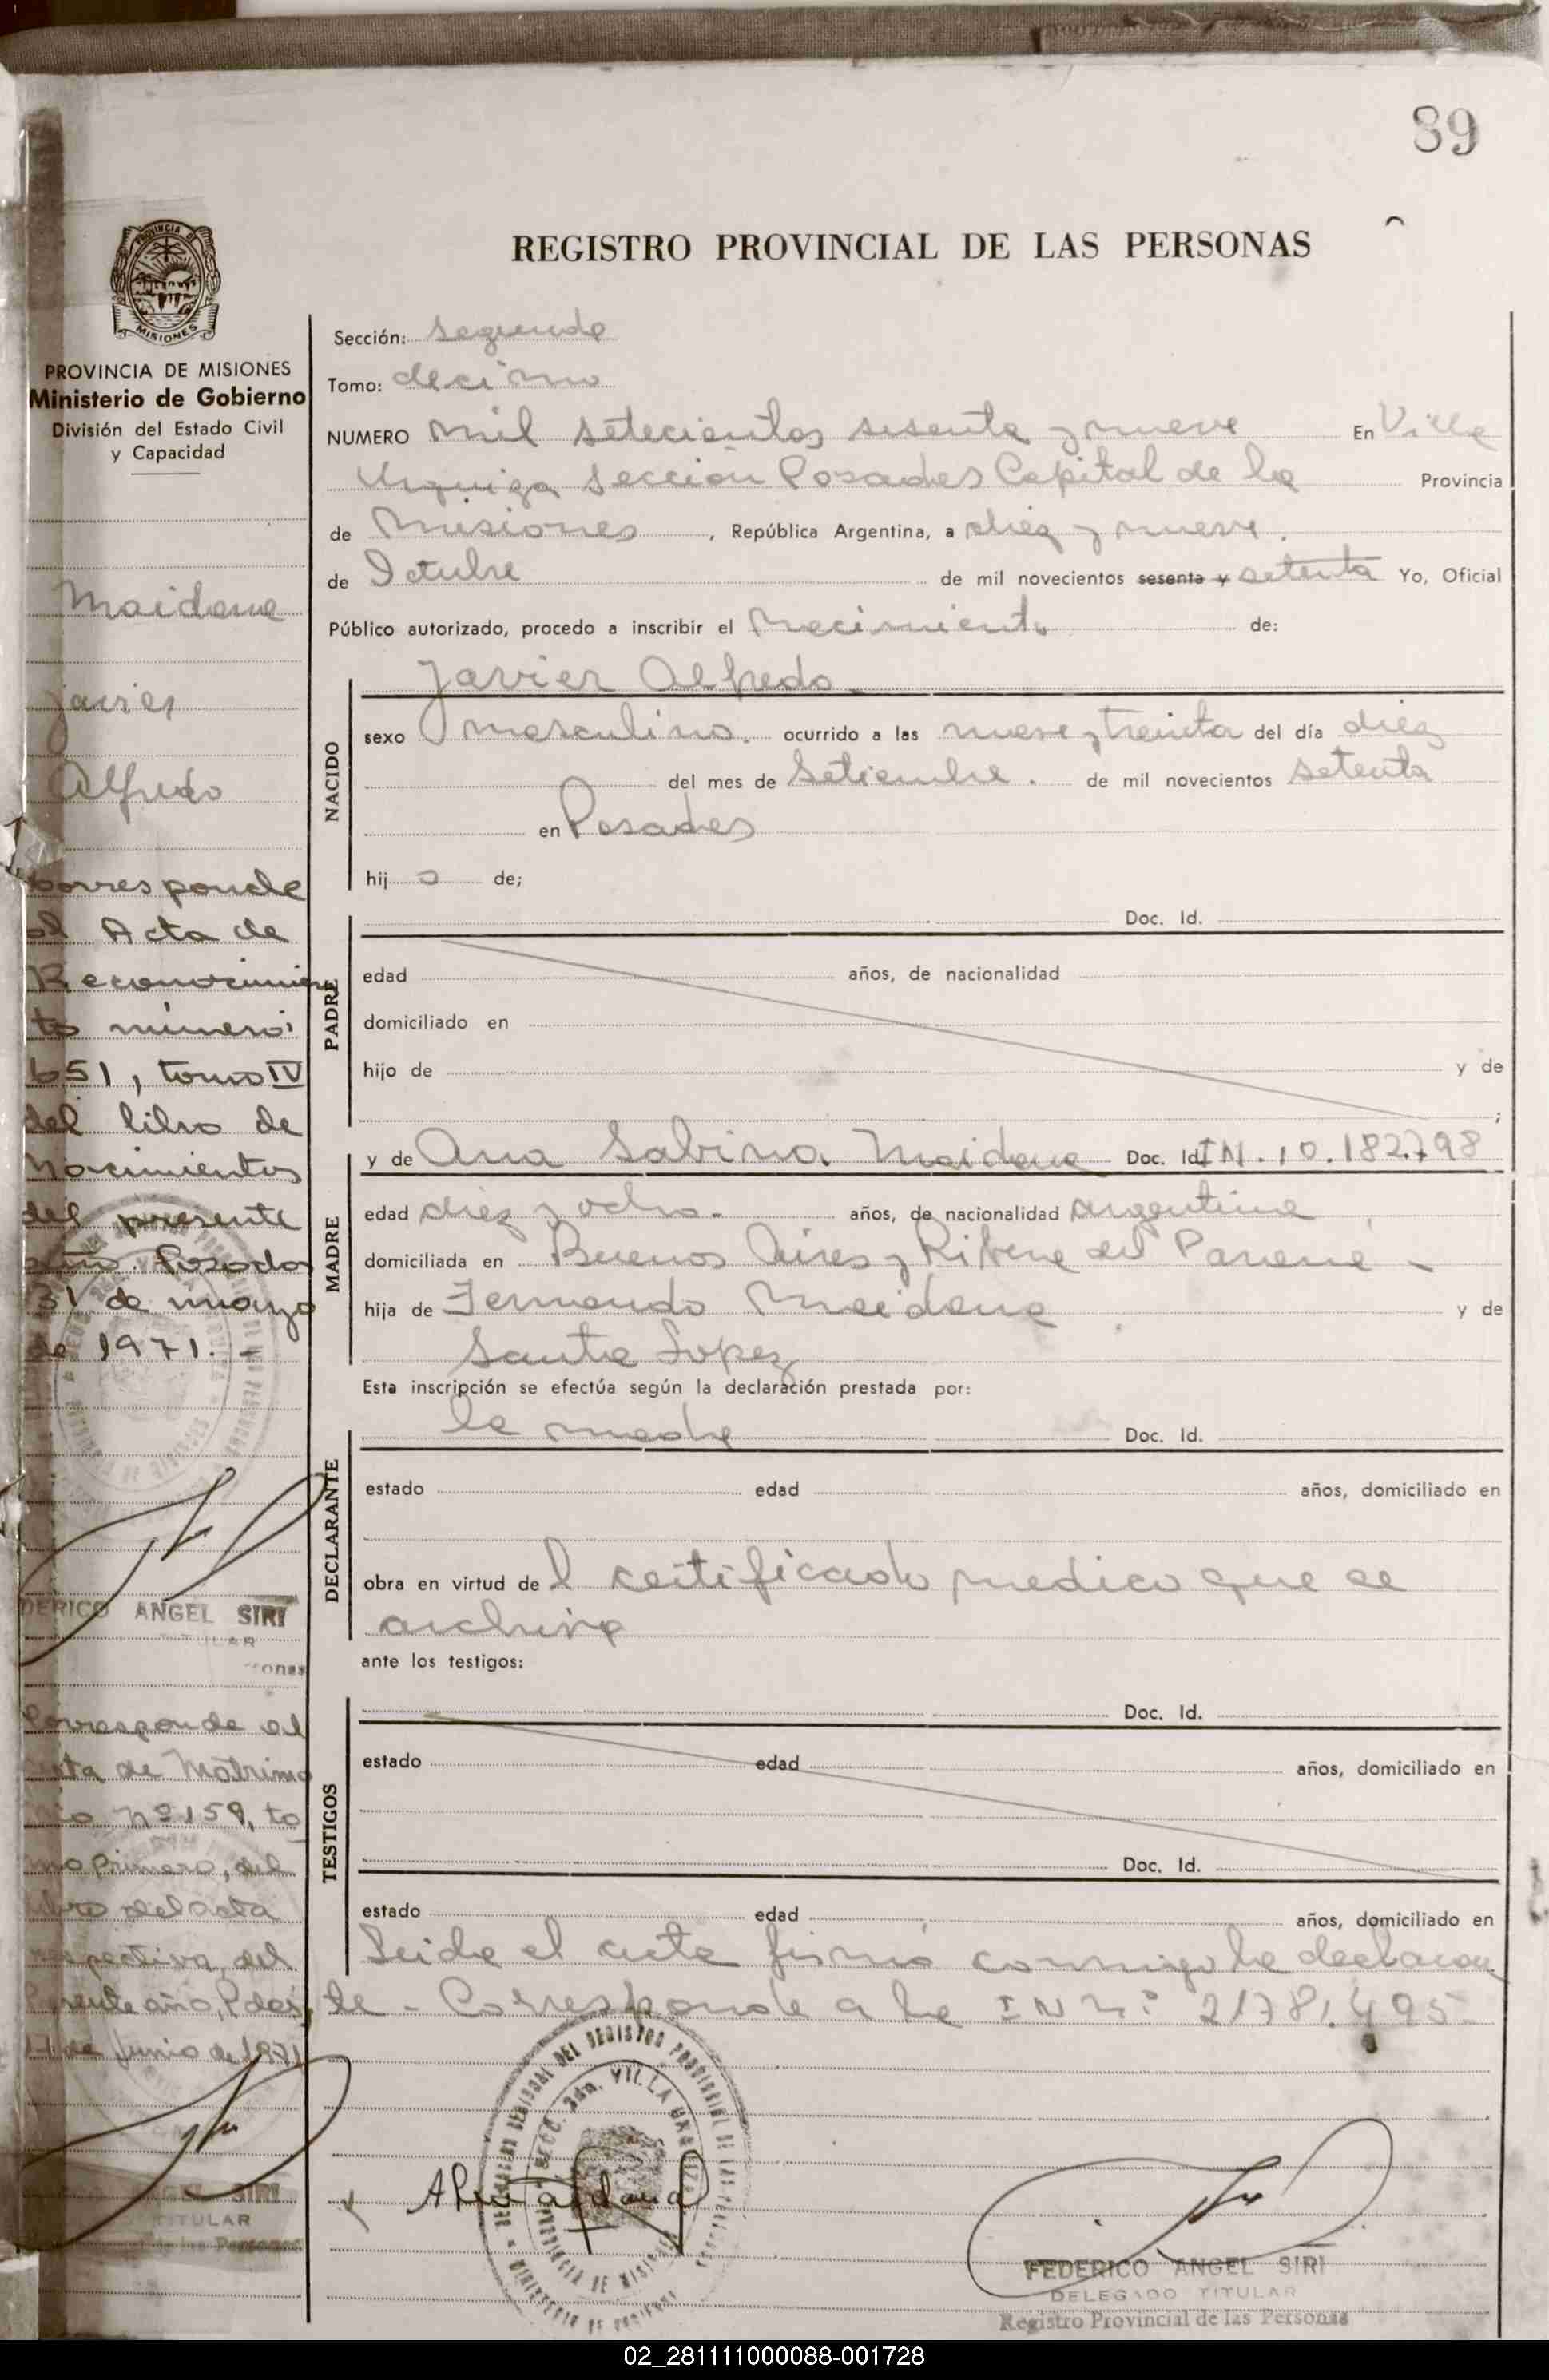 89
REGISTRO PROVINCIAL DE LAS PERSONAS
PROVINCIA DE MISIONES
Ministerio de Gobierno
División del Estado Civil
y Capacidad
Maidana
Javier
Alfredo
Corresponde
al Acta de
Reconocimien
to número
651, tomo IV
del libro de
Nacimientos
del presente
año. Posadas
31 de marzo
de 1971.-
FEDERICO ANGEL SIRI
TITULAR
Corresponde al
acta de Matrimo
nio nº 159, to
mo primero, del
libro del acta
respectiva, del
Pdas,
de Junio de 1971
ANGEL SIRI
TITULAR
de las Personas
Sección: segunda
Tomo: decimo
NUMERO mil setecientos sesenta y nueve En Villa
Urquiza Sección Posadas Capital de la Provincia
de Misiones, República Argentina, a diez y nueve.
de Octubre de mil novecientos sesenta y setenta Yo, Oficial
Público autorizado, procedo a inscribir el Nacimiento de:
Javier Alfredo.
NACIDO
sexo masculino. ocurrido a las nueve y treinta del día diez
del mes de Setiembre. de mil novecientos setenta
en Posadas
hij o de;
PADRE
Doc. Id.
edad años, de nacionalidad
domiciliado en
hijo de y de
;
MADRE
y de Ana Sabina Maidana Doc. Id. IN. 10.182.798
edad diez y ocho. años, de nacionalidad argentina
domiciliada en Buenos Aires y Ribera del Parana -
hija de Fernando Maidana y de
Santa Lopez
Esta inscripción se efectúa según la declaración prestada por:
DECLARANTE
la madre Doc. Id.
estado edad años, domiciliado en
obra en virtud de l certificado medico que se
archiva
ante los testigos:
TESTIGOS
Doc. Id.
estado edad años, domiciliado en
Doc. Id.
estado edad años, domiciliado en
Leida el acta firmó conmigo la declaran
te - Corresponde a la IN Nº 21781.495-
SECC. 2da. VILLA URQUIZA
FEDERICO ANGEL SIRI
DELEGADO TITULAR
Registro Provincial de las Personas
02_281111000088-001728